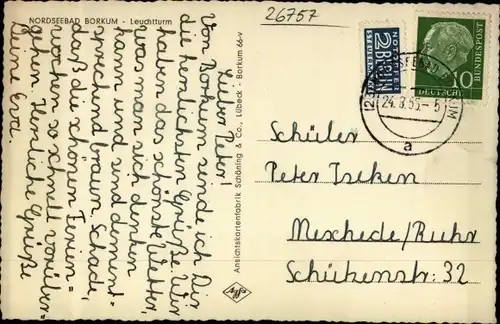 NORDSEEBAD BORKUM - Leuchtturm
26757
Lieber Peter!
Von Borkum sende ich Dir
die herzlichsten Grüße. Wir
haben das schönste Wetter,
was man sich denken
kann und sind dement-
sprechend braun. Schade,
daß die schönen Ferien=
wochen so schnell vorüber=
gehen. Herzliche Grüße
Deine Eva.
Ansichtskartenfabrik Schöning & Co., Lübeck - Borkum 66-v
Agfa
NOTOPFER
2 BERLIN
STEUERMARKE
DEUTSCHE BUNDESPOST
10
24. 8. 55 - 5
a
Schüler
Peter Iseken
Meschede/Ruhr
Schützenstr. 32